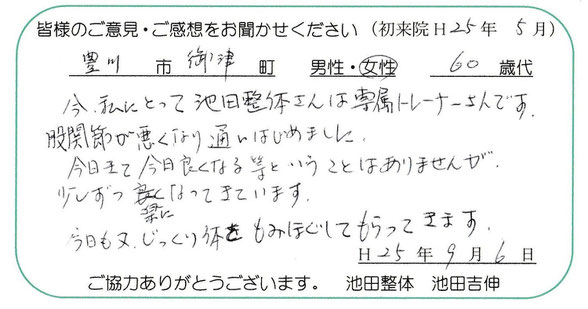 皆様のご意見・ご感想をお聞かせください（初来院H25年 5月）
豊川 市 御津 町 男性・女性 60 歳代
今、私にとって池田整体さんは専属トレーナーさんです。
股関節が悪くなり通いはじめました。
今日きて今日良くなる等ということはありませんが、
少しずつ楽になってきています。
今日も又、じっくり体をもみほぐしてもらってきます。
H25年9月6日
ご協力ありがとうございます。 池田整体 池田吉伸